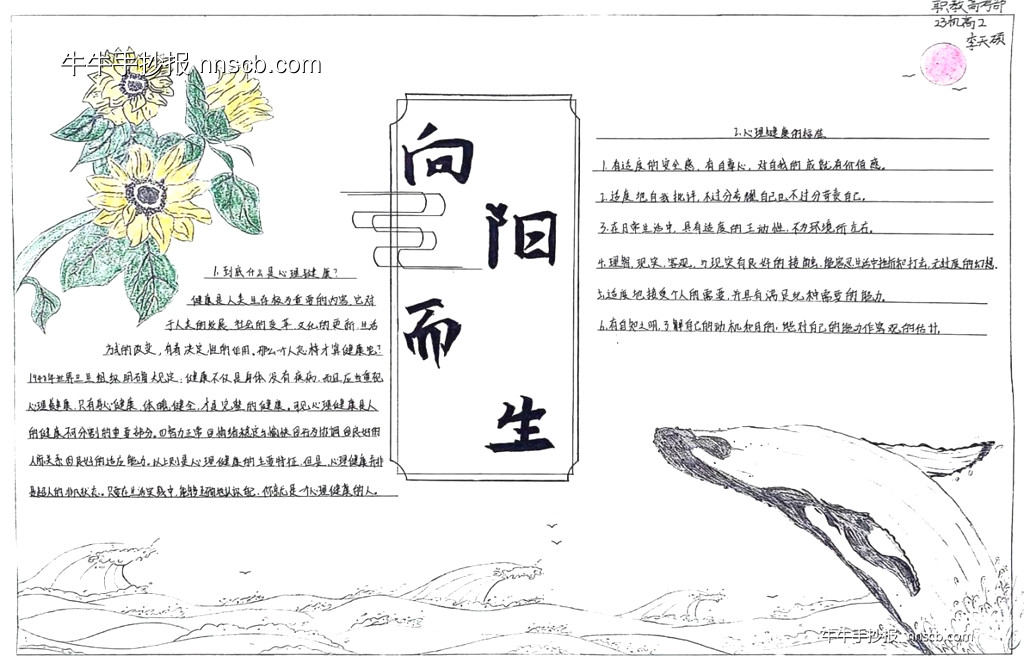 职教高考部
23机高2
李天硕
牛牛手抄报 nnscb.com
向
阳
而
生
1.到底什么是心理健康?
健康是人类生存极为重要的内容,它对
于人类的发展,社会的变革,文化的更新,生活
方式的改变,有着决定性的作用。那么一个人怎样才算健康呢?
1948年世界卫生组织明确规定:健康不仅是身体没有疾病,而且应当重视
心理健康,只有身心健康、体魄健全,才是完整的健康。可见心理健康是人
的健康不可分割的重要部分。智力正常 情绪稳定与愉快 行为协调 良好的
人际关系 良好的适应能力。以上则是心理健康的主要特征,但是,心理健康并非
是超人的非凡状态。只要在生活实践中,能够正确地认识自己,你就是一个心理健康的人。
2.心理健康的标准
1.有适度的安全感,有自尊心,对自我的成就有价值感。
2.适度地自我批评,不过分夸耀自己也不过分苛责自己。
3.在日常生活中,具有适度的主动性,不为环境所左右。
4.理智,现实,客观,与现实有良好的接触,能容忍生活中挫折和打击,无过度的幻想。
5.适度地接受个人的需要,并具有满足此种需要的能力。
6.有自知之明,了解自己的动机和目的,能对自己的能力作客观的估计。
牛牛手抄报 nnscb.com